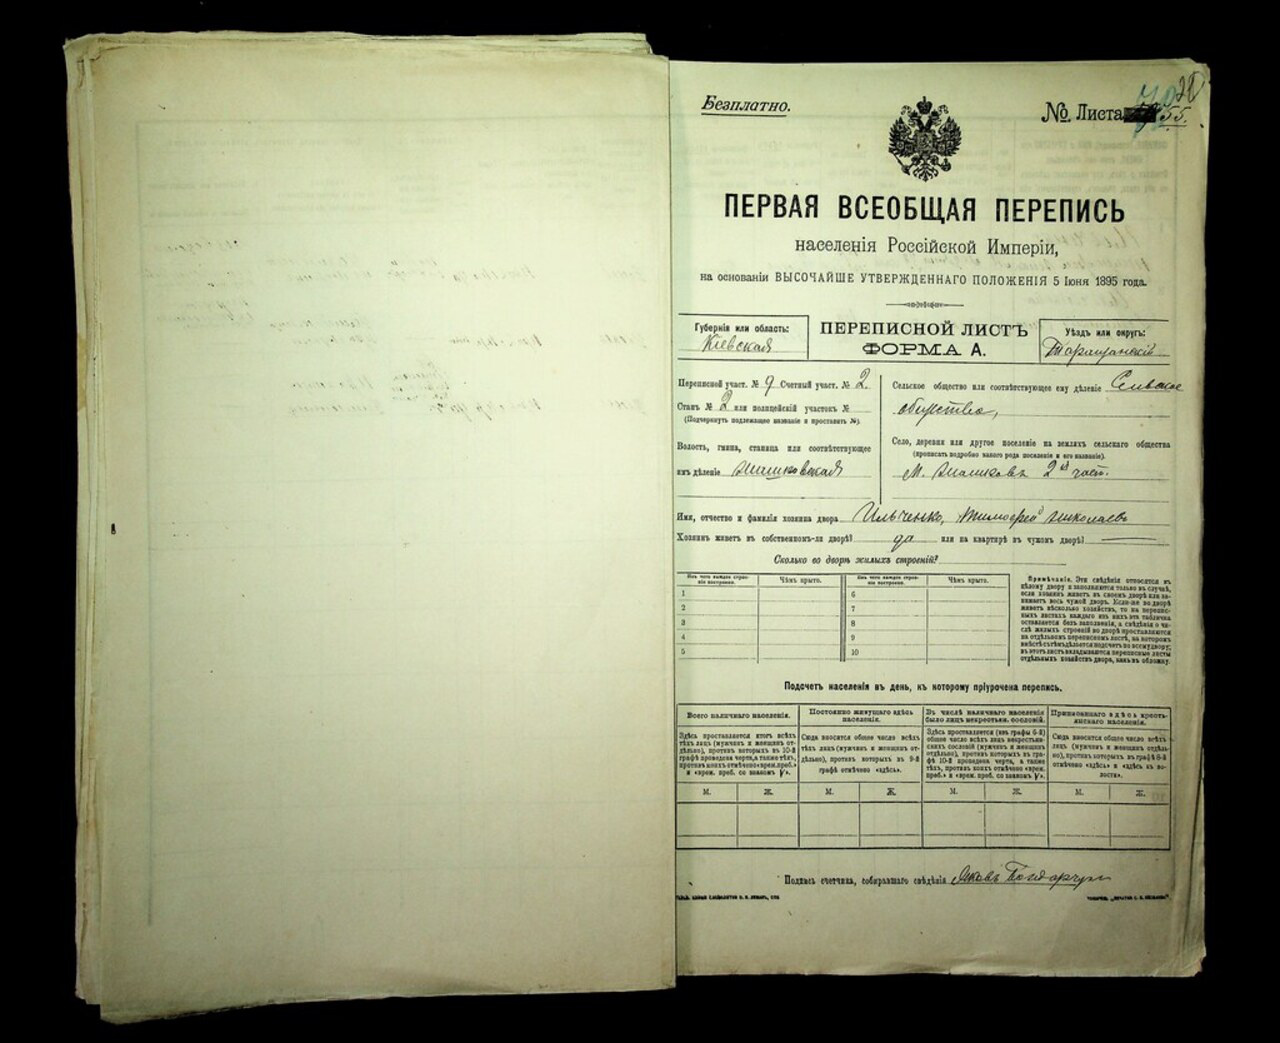 Безплатно.
№ Листа 55.
ПЕРВАЯ ВСЕОБЩАЯ ПЕРЕПИСЬ
населенія Россійской Имперіи,
на основаніи ВЫСОЧАЙШЕ УТВЕРЖДЕННАГО ПОЛОЖЕНІЯ 5 Іюня 1895 года.
Губернія или область:
Кіевская
ПЕРЕПИСНОЙ ЛИСТЪ
ФОРМА А.
Уѣздъ или округъ:
Таращанскій
Переписной участ. № 9 Счетный участ. № 2.
Станъ № 2 или полицейскій участокъ №
(Подчеркнуть подлежащее названіе и проставить №).
Волость, гмина, станица или соотвѣтствующее
имъ дѣленіе
Сельское общество или соотвѣтствующее ему дѣленіе Сельское
общество,
Село, деревня или другое поселеніе на земляхъ сельскаго общества
(прописать подробно какого рода поселеніе и его названіе).
М. 2й част.
Имя, отчество и фамилія хозяина двора Ильченко, Тимофей Николаевъ
Хозяинъ живетъ въ собственномъ-ли дворѣ? да или на квартирѣ въ чужомъ дворѣ?
Сколько во дворѣ жилыхъ строеній?
Изъ чего каждое строеніе построено. Чѣмъ крыто. Изъ чего каждое строеніе построено. Чѣмъ крыто.
1 6
2 7
3 8
4 9
5 10
Примѣчаніе. Эти свѣдѣнія относятся къ
цѣлому двору и заполняются только въ случаѣ,
если хозяинъ живетъ въ своемъ дворѣ или занимаетъ
весь чужой дворъ. Если-же во дворѣ
живетъ нѣсколько хозяйствъ, то на переписныхъ
листахъ каждаго изъ нихъ эта табличка
оставляется безъ заполненія, а свѣдѣнія о числѣ
жилыхъ строеній во дворѣ проставляются
на отдѣльномъ переписномъ листѣ, на которомъ
вмѣстѣ съ тѣмъ дѣлается подсчетъ по всему двору;
въ этотъ листъ вкладываются переписные листы
отдѣльныхъ хозяйствъ двора, какъ въ обложку.
Подсчетъ населенія въ день, къ которому пріурочена перепись.
Всего наличнаго населенія.
Здѣсь проставляется итогъ всѣхъ
тѣхъ лицъ (мужчинъ и женщинъ отдѣльно),
противъ которыхъ въ 10-й
графѣ проведена черта, а также тѣхъ,
противъ коихъ отмѣчено «врем. преб.»
и «врем. преб. со знакомъ V».
Постоянно живущаго здѣсь
населенія.
Сюда вносится общее число всѣхъ
тѣхъ лицъ (мужчинъ и женщинъ отдѣльно),
противъ которыхъ въ 9-й
графѣ отмѣчено «здѣсь».
Въ числѣ наличнаго населенія
было лицъ некрестьян. сословій.
Здѣсь проставляется (изъ графы 6-й)
общее число всѣхъ лицъ некрестьянскихъ
сословій (мужчинъ и женщинъ
отдѣльно), противъ которыхъ въ графѣ
10-й проведена черта, а также
тѣхъ, противъ коихъ отмѣчено «врем.
преб.» и «врем. преб. со знакомъ V».
Приписаннаго здѣсь крестьянскаго
населенія.
Сюда вносится общее число всѣхъ
лицъ (мужчинъ и женщинъ отдѣльно),
противъ которыхъ въ графѣ 8-й
отмѣчено «здѣсь» и «здѣсь въ волости».
М. Ж. М. Ж. М. Ж. М. Ж.
Подпись счетчика, собиравшаго свѣдѣнія Яковъ Бондарчукъ